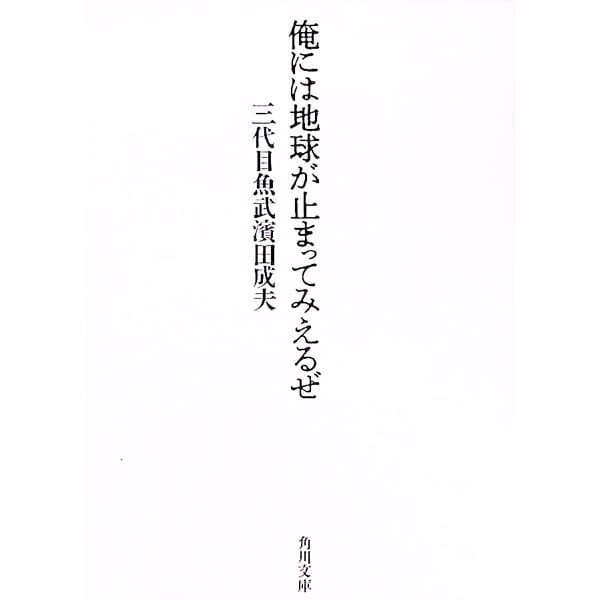 俺には地球が止まってみえるぜ
三代目魚武濱田成夫
角川文庫